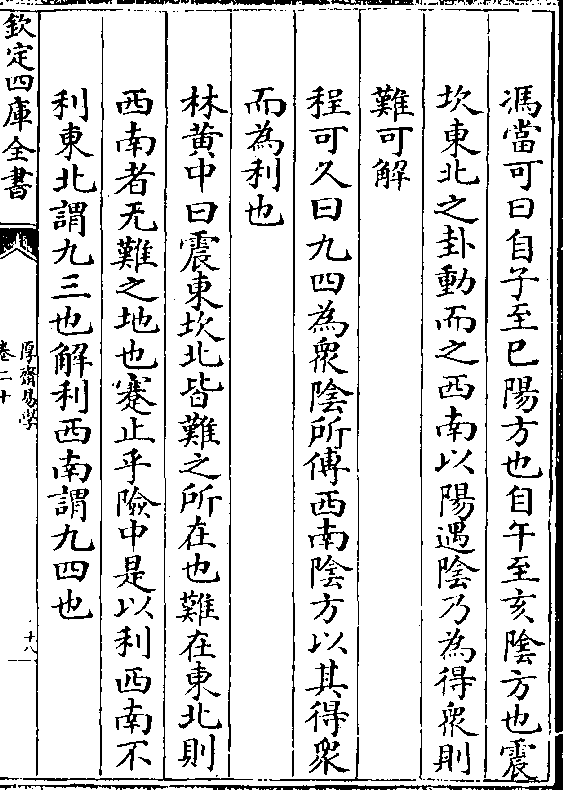 馮當可曰自子至巳陽方也自午至亥陰方也震
坎東北之卦動而之西南以陽遇陰乃為得衆則
難可解
程可久曰九四為衆陰所傅西南陰方以其得衆
而為利也
林黄中曰震東坎北皆難之所在也難在東北則
西南者无難之地也蹇止乎險中是以利西南不
利東北謂九三也解利西南謂九四也
欽定四庫全書
厚齋易學
卷二十
十八